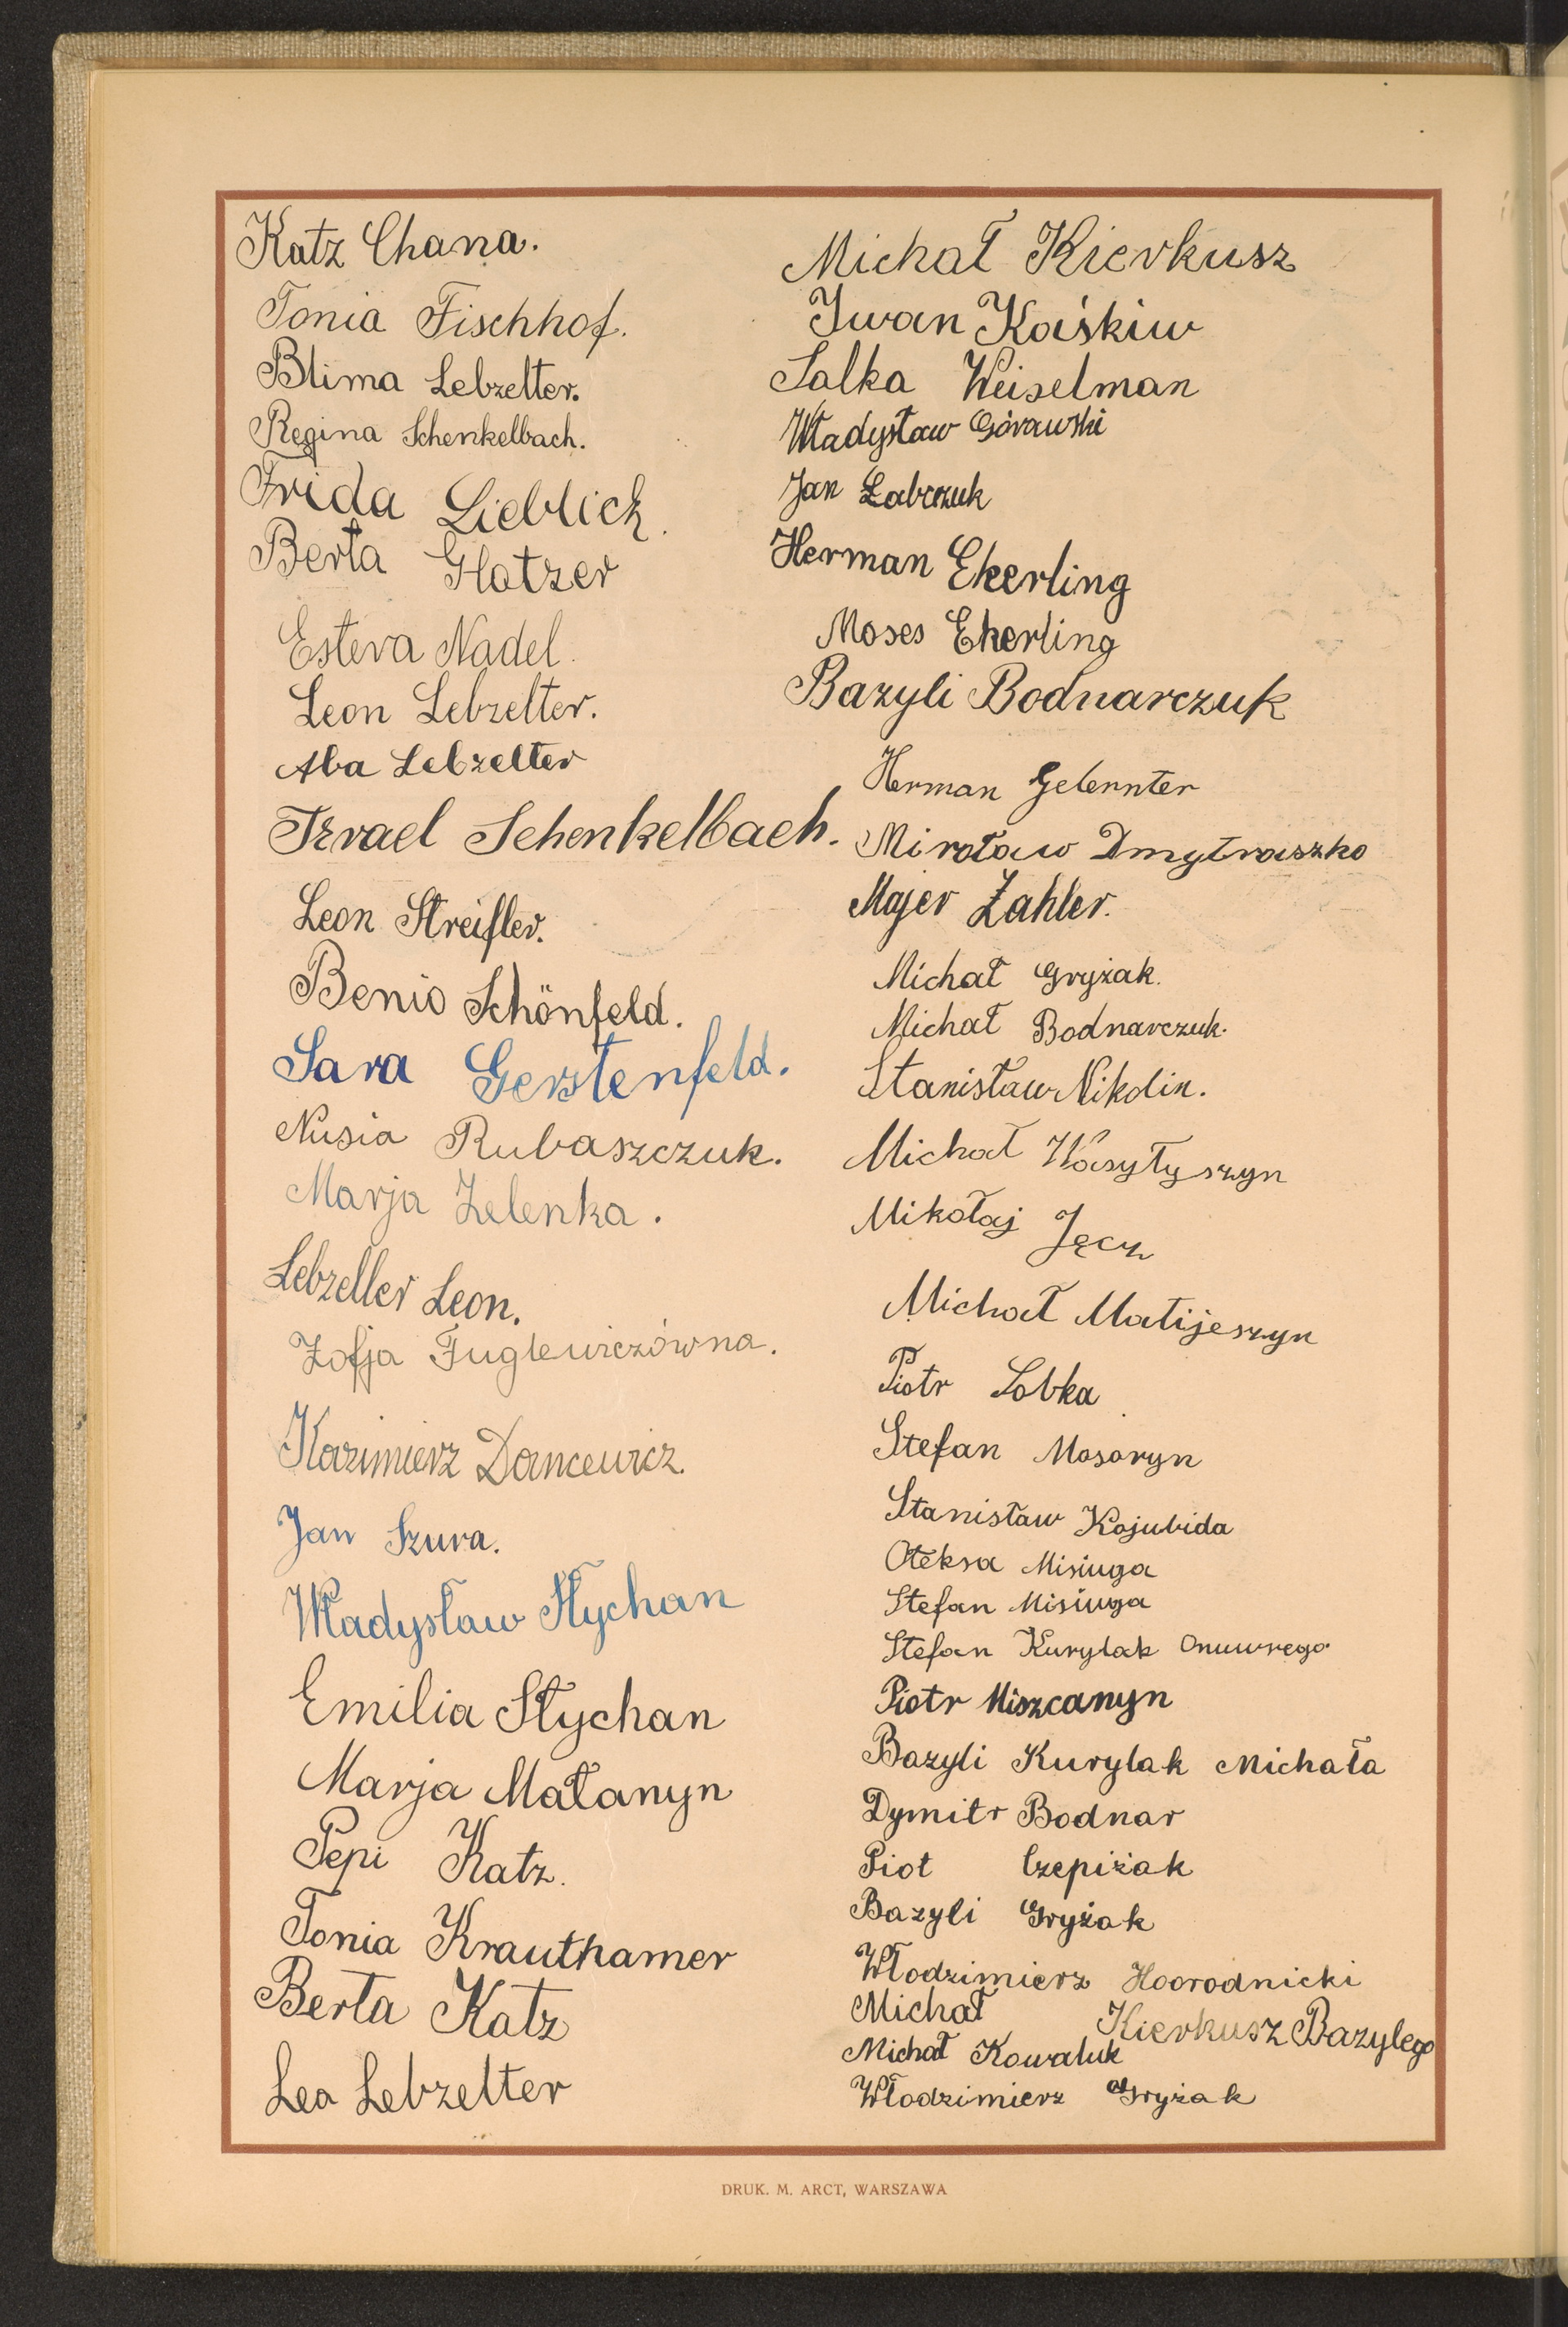 Katz Chana.
Tonia Fischhof.
Blima Lebzelter.
Regina Schenkelbach.
Frida Lieblich.
Berta Glatzer
Estera Nadel.
Leon Lebzelter.
Aba Lebzelter
Izrael Schenkelbach.
Leon Streifler.
Benio Schönfeld.
Sara Gerstenfeld.
Nusia Rubaszczuk.
Marja Zelenka.
Lebzelter Leon.
Zofja Fuglewiczówna.
Kazimierz Dancewicz.
Jan Szura.
Władysław Stychan
Emilia Stychan
Marja Małanyn
Pepi Katz.
Tonia Krauthamer
Berta Katz
Lea Lebzelter
Michał Kierkusz
Iwan Kaśkiw
Salka Weiselman
Władysław Górawski
Jan Łabczuk
Herman Ekerling
Moses Ekerling
Bazyli Bodnarczuk
Herman Gelernter
Miroław Dmytraszko
Majer Zahler.
Michał Gryżak.
Michał Bodnarczuk.
Stanisław Nikolin.
Michał Wasyłyszyn
Mikołaj Jęcz
Michał Matijeszyn
Piotr Sobka
Stefan Masaryn
Stanisław Kojubida
Ołeksa Misiuga
Stefan Misiuga
Stefan Kurylak Onuwrego
Piotr Miszcanyn
Bazyli Kurylak Michała
Dymitr Bodnar
Piot Czepiżak
Bazyli Gryżak
Włodzimierz Hoorodnicki
Michał Kierkusz Bazylego
Michał Kowaluk
Włodzimierz Gryżak
DRUK. M. ARCT, WARSZAWA